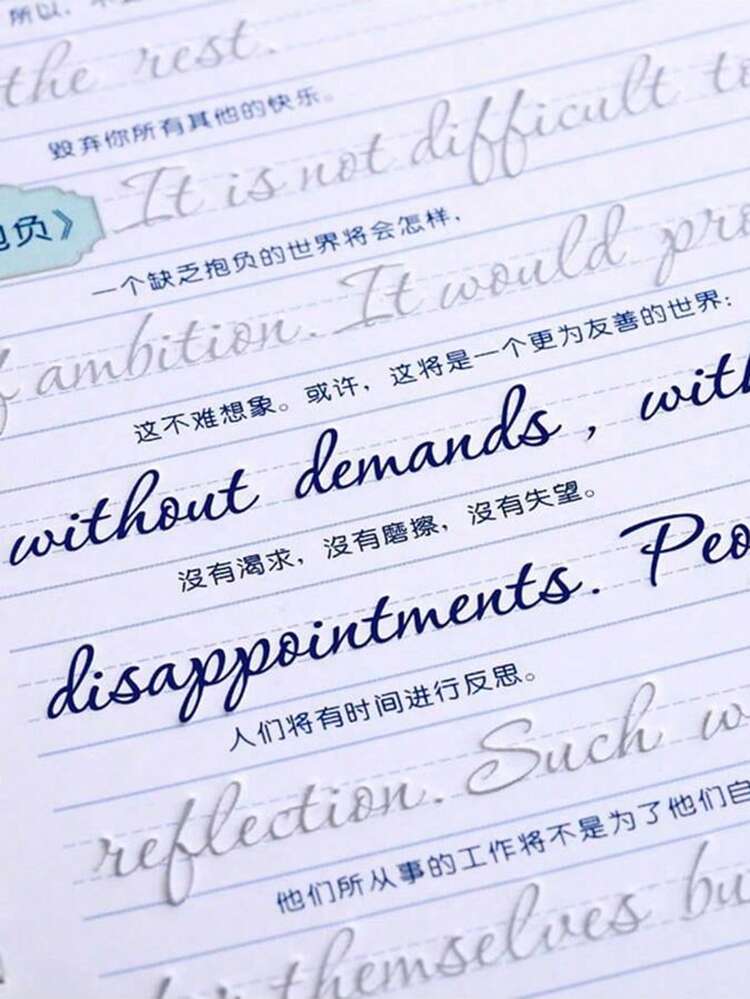 所以，不
the rest.
毁弃你所有其他的快乐。
It is not difficult to
负》
一个缺乏抱负的世界将会怎样，
of ambition. It would
这不难想象。或许，这将是一个更为友善的世界：
without demands, with
沒有渴求，沒有磨擦，沒有失望。
disappointments. Peo
人们将有时间进行反思。
reflection. Such w
他们所从事的工作将不是为了他们自
themselves bu